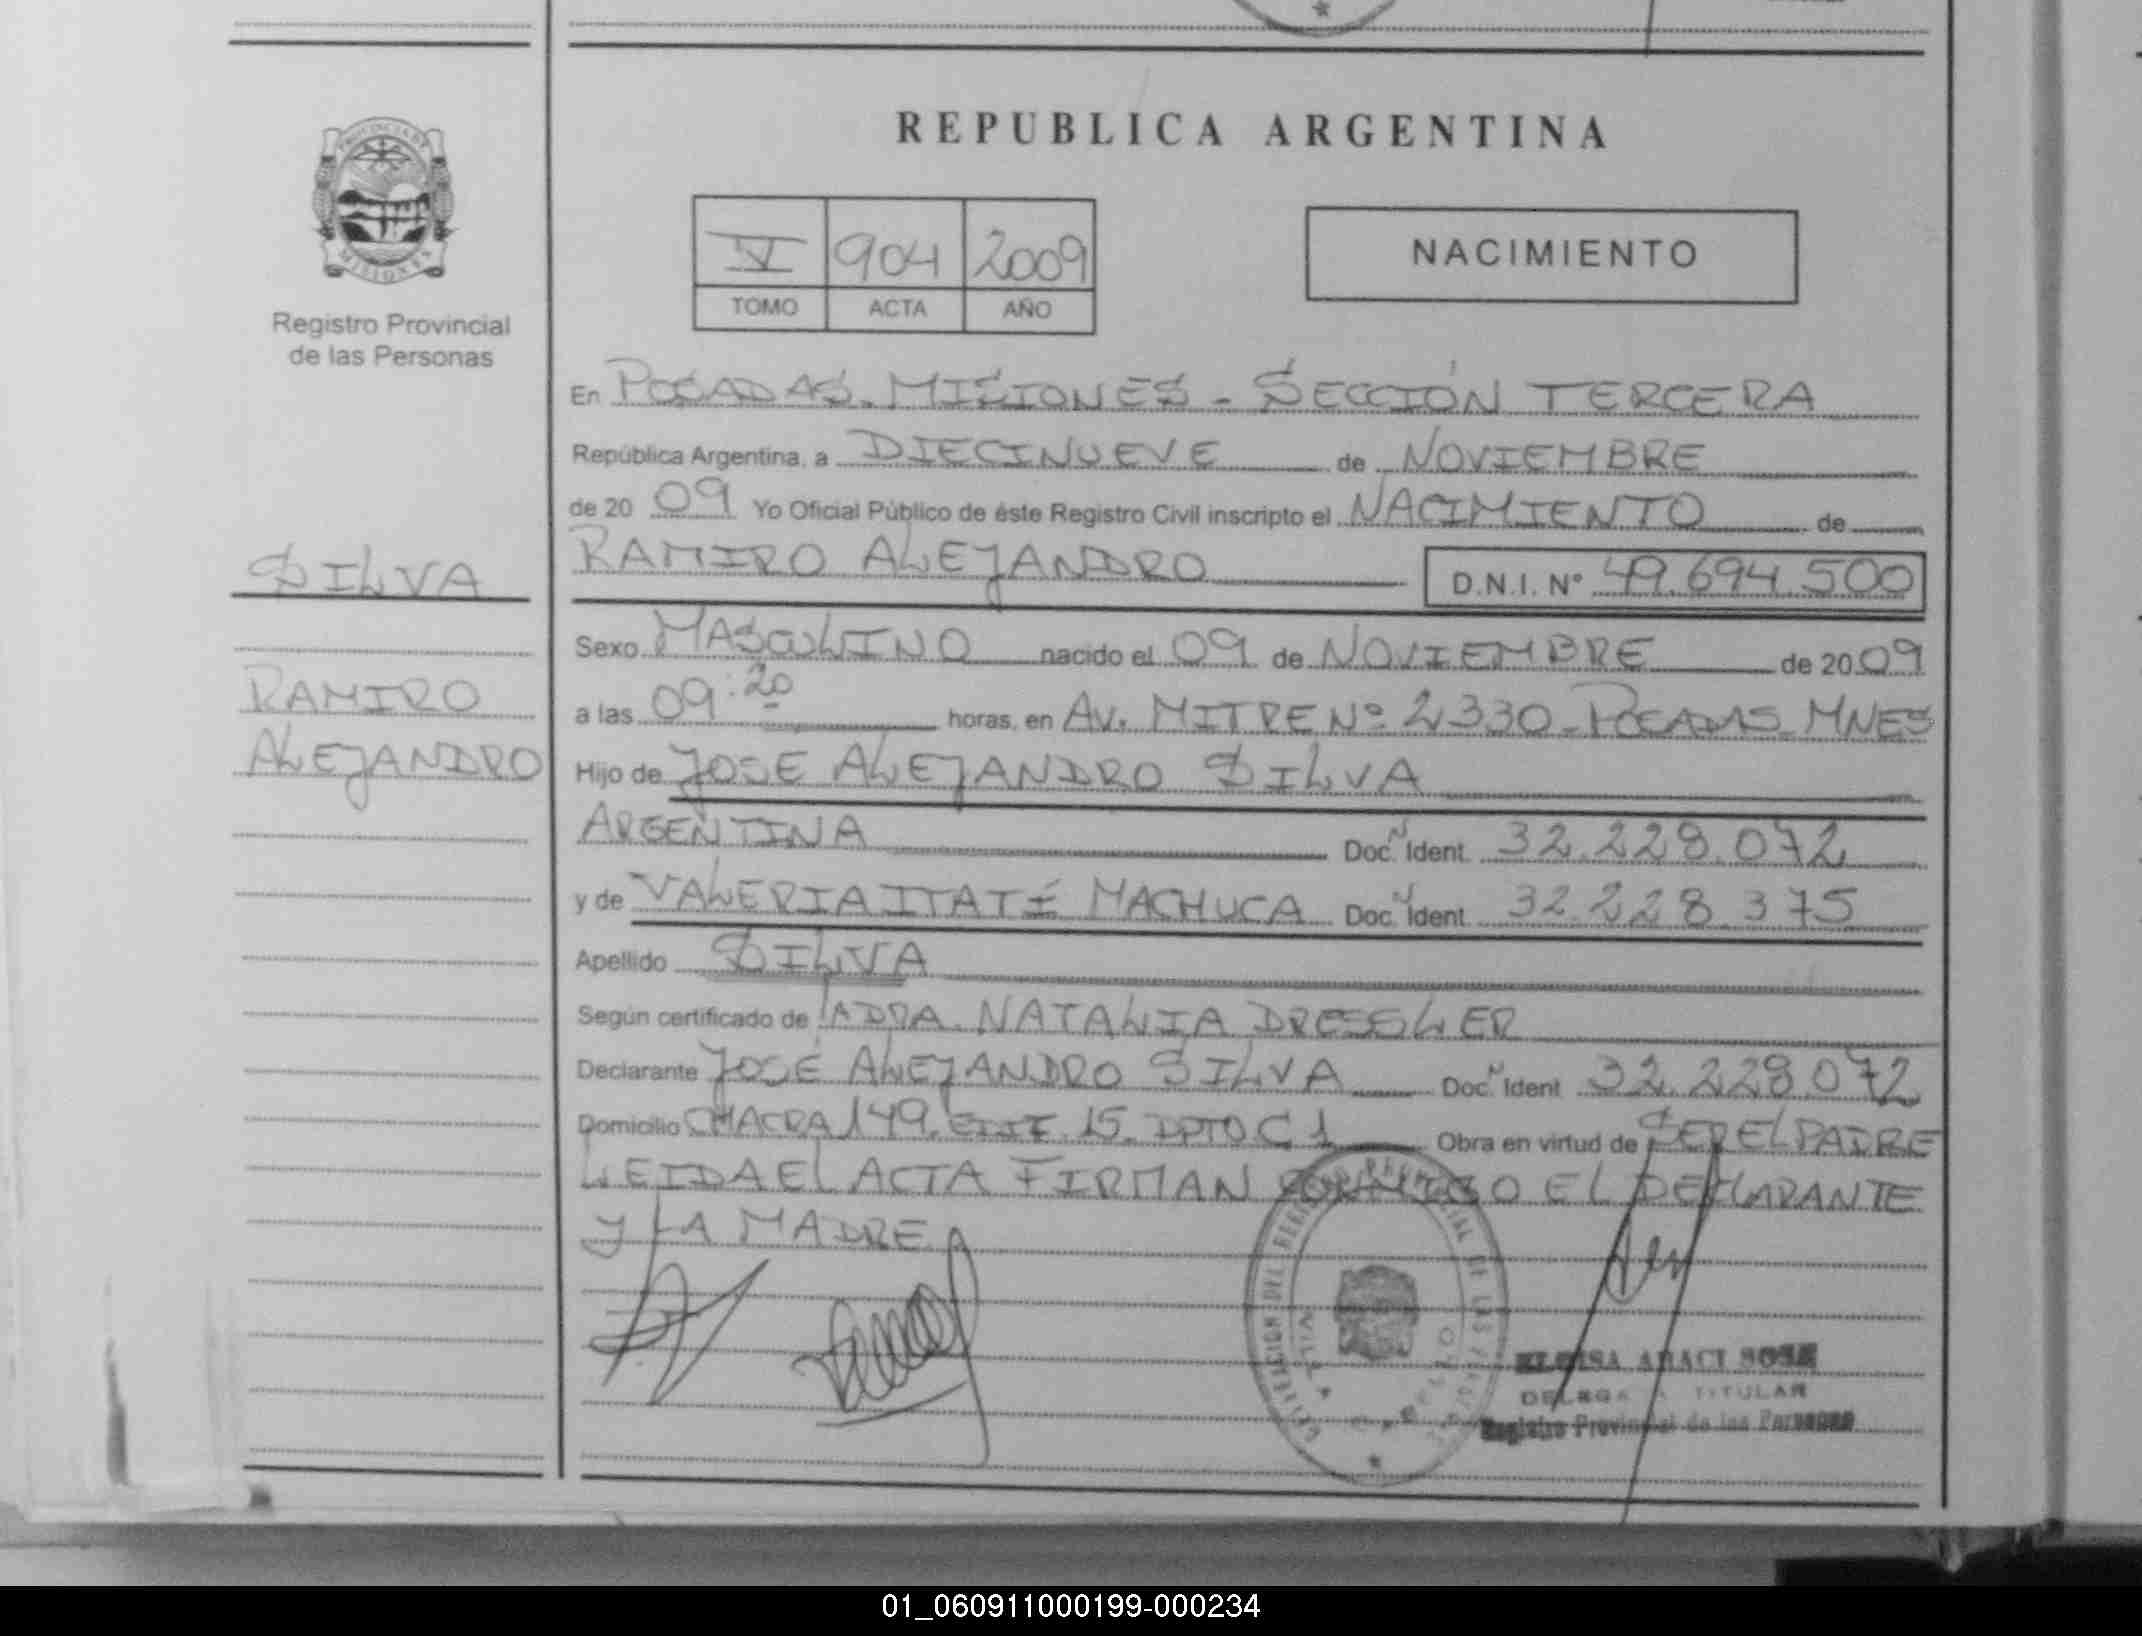 REPUBLICA ARGENTINA
PROVINCIA DE
MISIONES
Registro Provincial
de las Personas
V 904 2009
TOMO ACTA AÑO
NACIMIENTO
En POSADAS. MISIONES - SECCIÓN TERCERA
República Argentina, a DIECINUEVE de NOVIEMBRE
de 20 09 Yo Oficial Público de éste Registro Civil inscripto el NACIMIENTO de
SILVA
RAMIRO ALEJANDRO D.N.I. Nº 49.694.500
Sexo MASCULINO nacido el 09 de NOVIEMBRE de 20 09
RAMIRO
a las 09:20 horas, en Av. MITRE Nº 2330 - POSADAS - MNES
ALEJANDRO
Hijo de JOSE ALEJANDRO SILVA
ARGENTINA Doc. Ident. 32.228.072
y de VALERIA ITATÍ MACHUCA Doc. Ident. 32.228.375
Apellido SILVA
Según certificado de LA DRA. NATALIA DRESSLER
Declarante JOSÉ ALEJANDRO SILVA Doc. Ident. 32.228.072
Domicilio CHACRA 149. EDIF. 15. DPTO C1 Obra en virtud de SER EL PADRE
LEIDA EL ACTA FIRMAN CONMIGO EL DECLARANTE
Y LA MADRE
DELEGADA TITULAR
Registro Provincial de las Personas
01_060911000199-000234